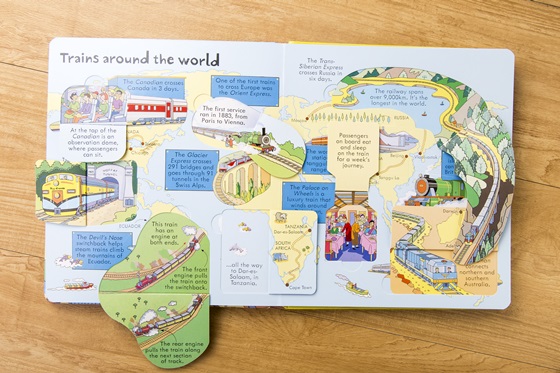 Trains around the world
The Canadian crosses
Canada in 3 days.
One of the first trains
to cross Europe was
the Orient Express.
The Trans-
Siberian Express
crosses Russia in
six days.
The railway spans
over 9,000km. It's the
longest in the world.
The first service
ran in 1883, from
Paris to Vienna.
RUSSIA
At the top of the
Canadian is an
observation dome,
where passengers
can sit.
Passengers
on board eat
and sleep
on the train
for a week's
journey.
The Glacier
Express crosses
291 bridges and
goes through 91
tunnels in the
Swiss Alps.
The Palace on
Wheels is a
luxury train that
winds around
ECUADOR
The Devil's Nose
switchback helps
steam trains climb
the mountains of
Ecuador.
This train
has an
engine at
both ends.
The front
engine pulls
the train onto
the switchback.
The rear engine
pulls the train along
the next section
of track.
...all the way
to Dar-es-
Salaam, in
Tanzania.
TANZANIA
Dar-es-Salaam
SOUTH
AFRICA
Cape Town
connects
northern and
southern
Australia.